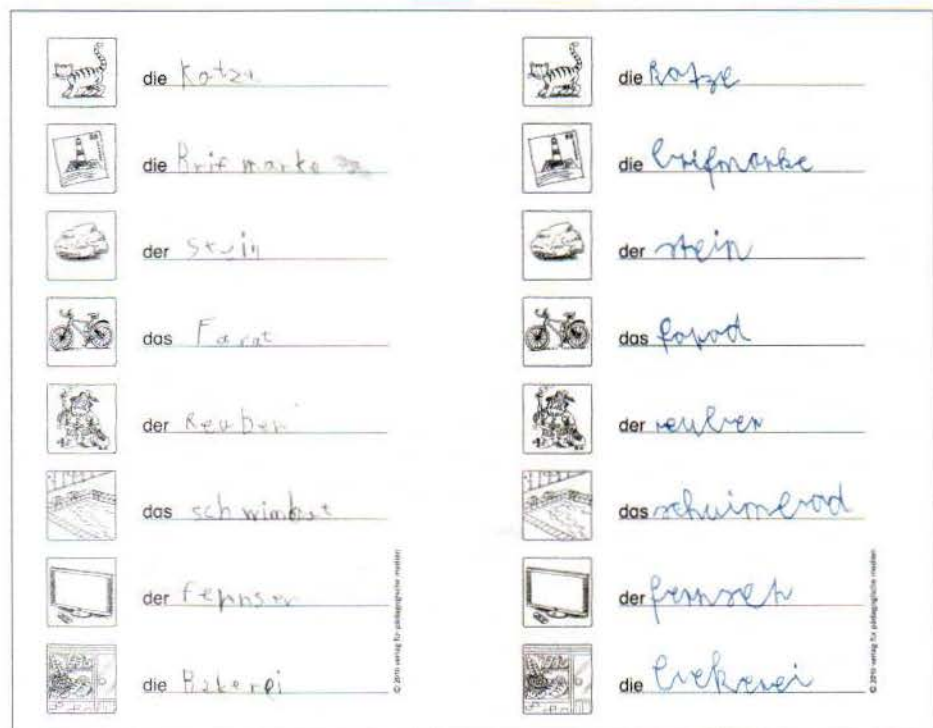 die Katze
die Brifmarke
der Stein
das Farat
der Reuber
das schwimbat
der
die Bakerei
© 2010 verlag für pädagogische medien
die katze
die brifmarke
der stein
das farad
der reuber
das schwimbad
der fernseh
die bekerei
© 2010 verlag für pädagogische medien